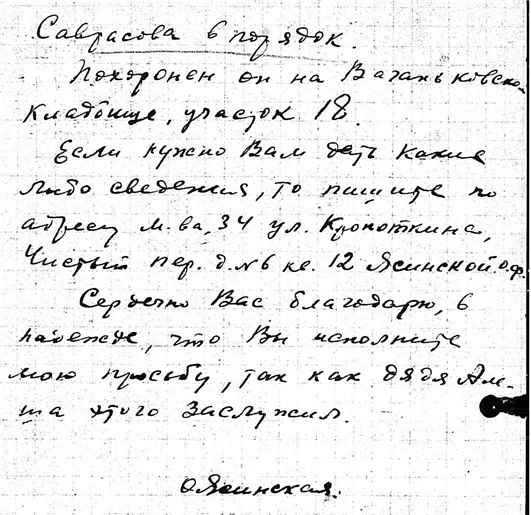 Саврасова в порядок.
Похоронен он на Ваганьковском
кладбище, участок 18.
Если нужно Вам дать какие
либо сведения, то пишите по
адресу м-ва, 34 ул. Кропоткина,
Чистый пер. д. №6 кв. 12 Ясинской О.Ф.
Сердечно Вас благодарю, в
надежде, что Вы исполните
мою просьбу, так как дядя Але-
ша этого заслужил.
О Ясинская.